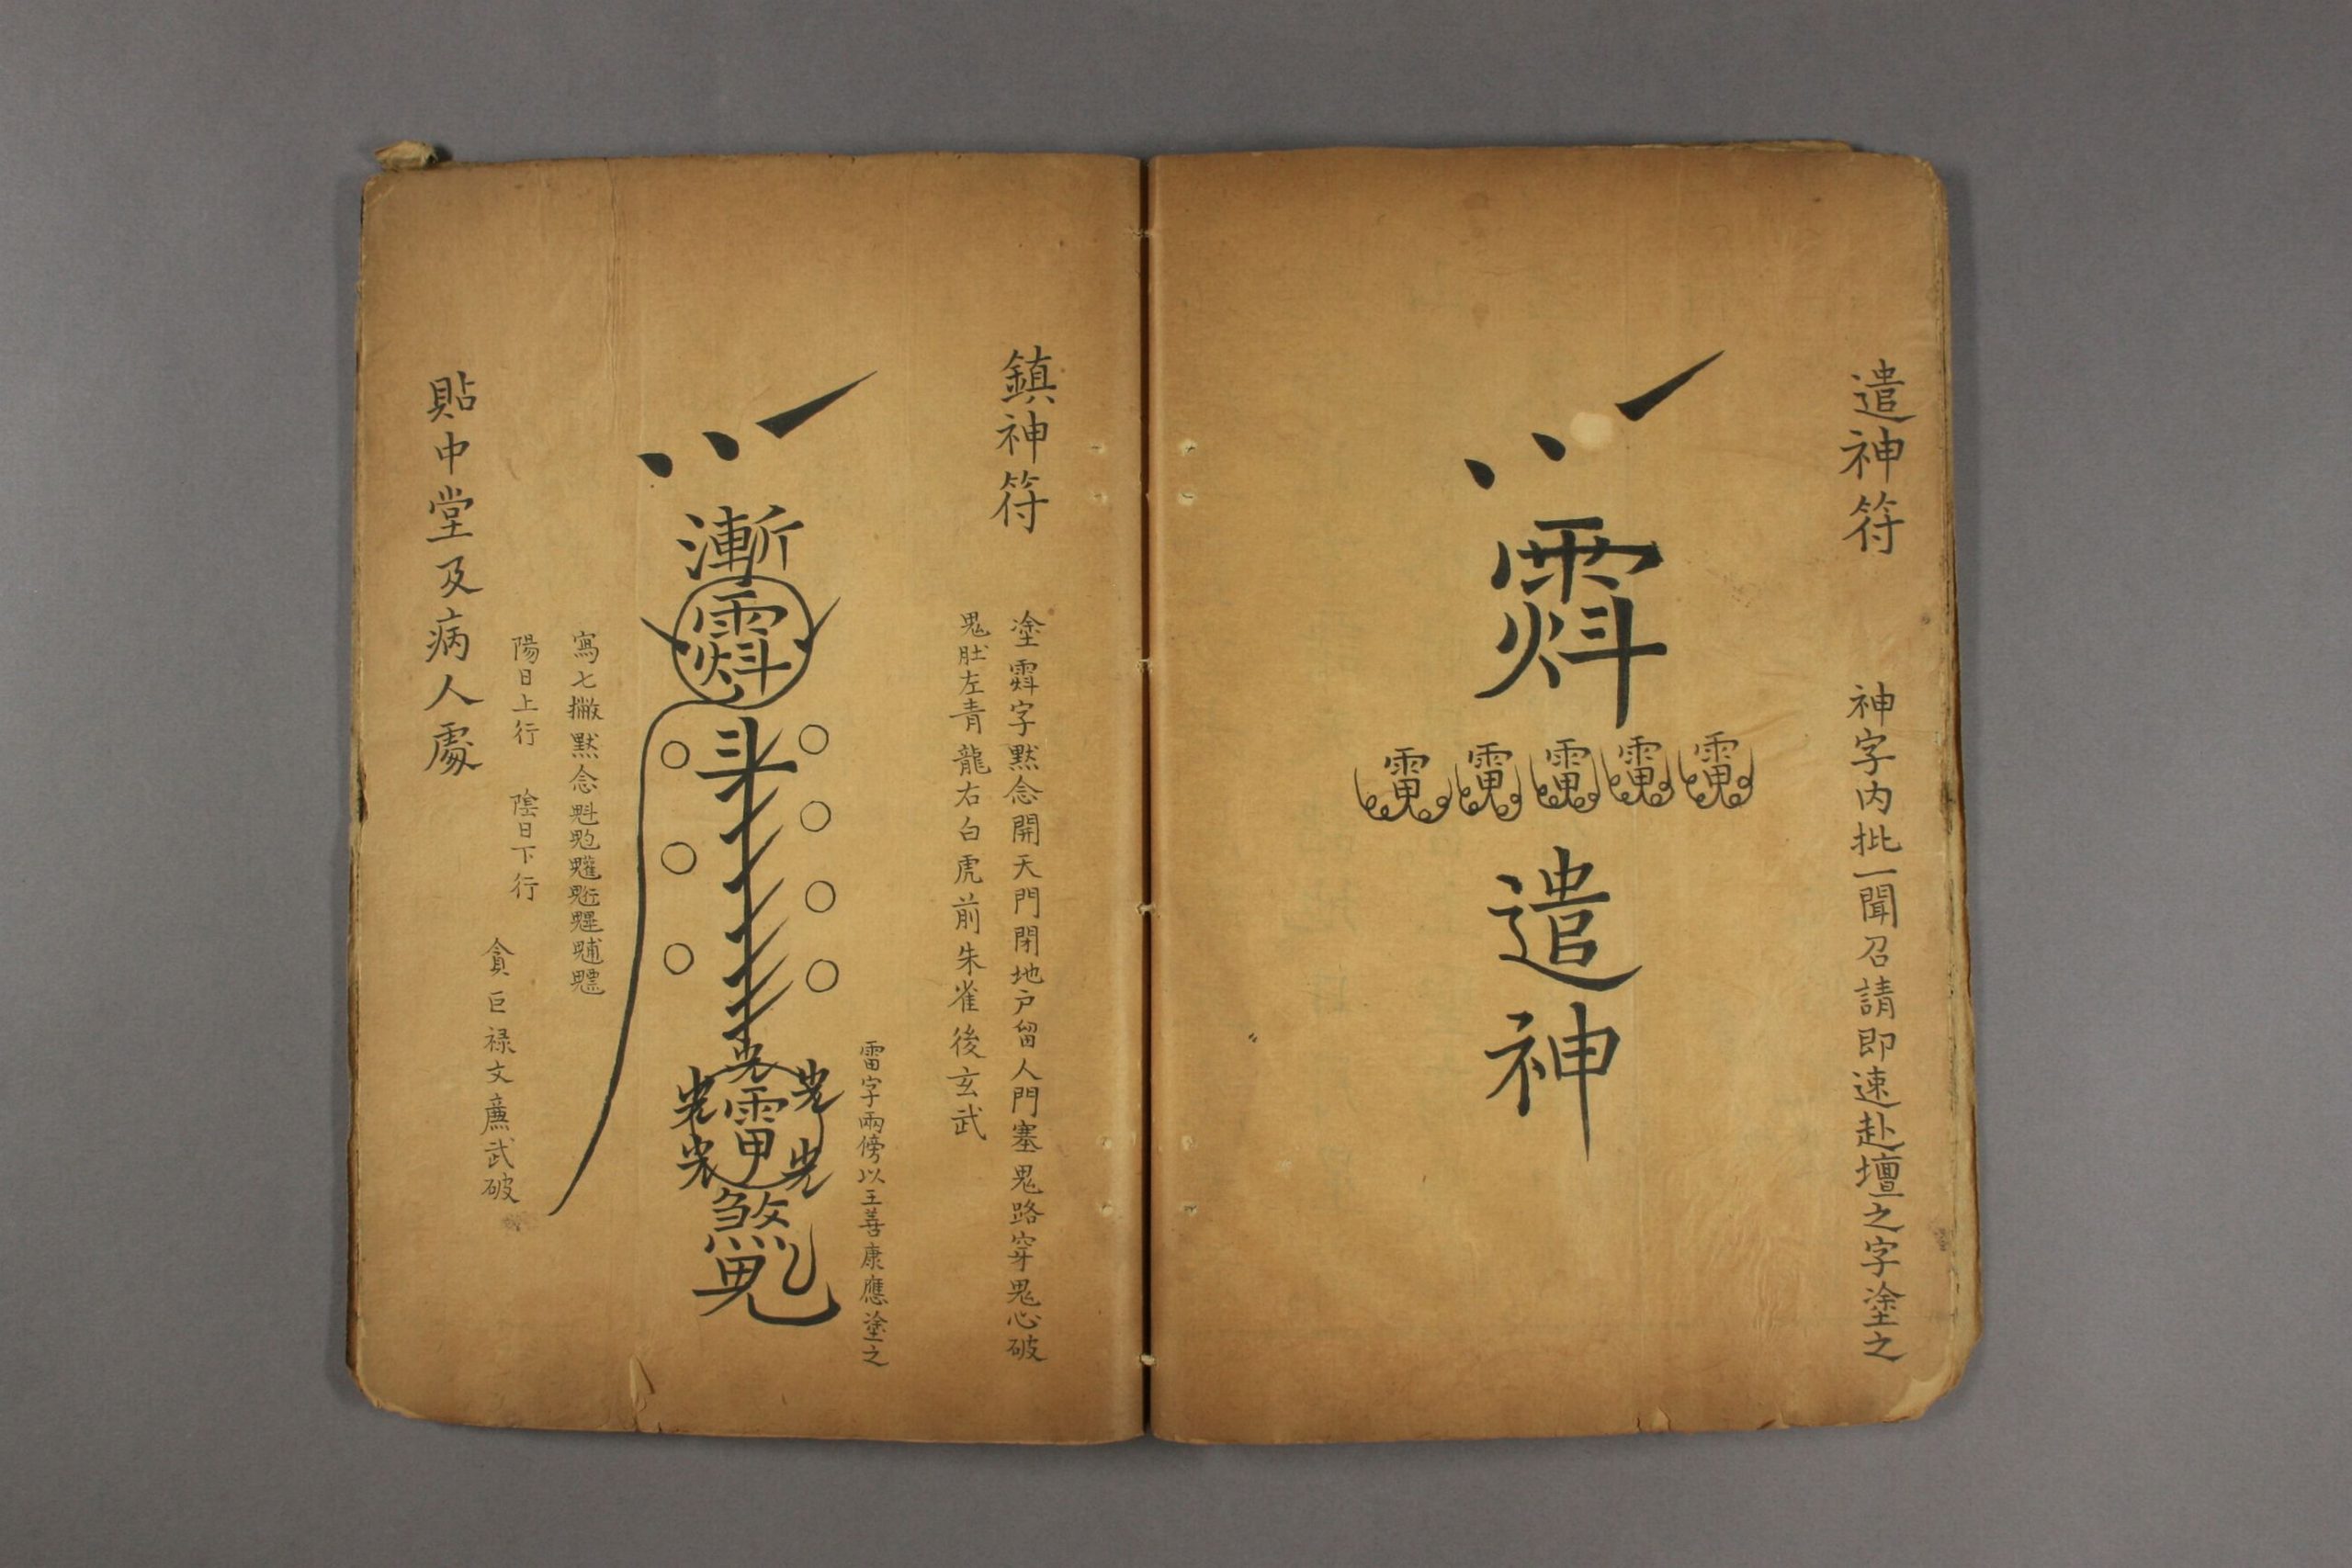 遣神符
神字内批一聞召請即速赴壇之字塗之
遣神
鎮神符
塗字黙念開天門閉地户留人門塞鬼路穿鬼心破
鬼肚左青龍右白虎前朱雀後玄武
雷字兩傍以王善康應塗之
漸
斗
雷
煞鬼
寫七撇黙念魁𩲃䰢魒
陽日上行 陰日下行
貪巨禄文廉武破
貼中堂及病人處